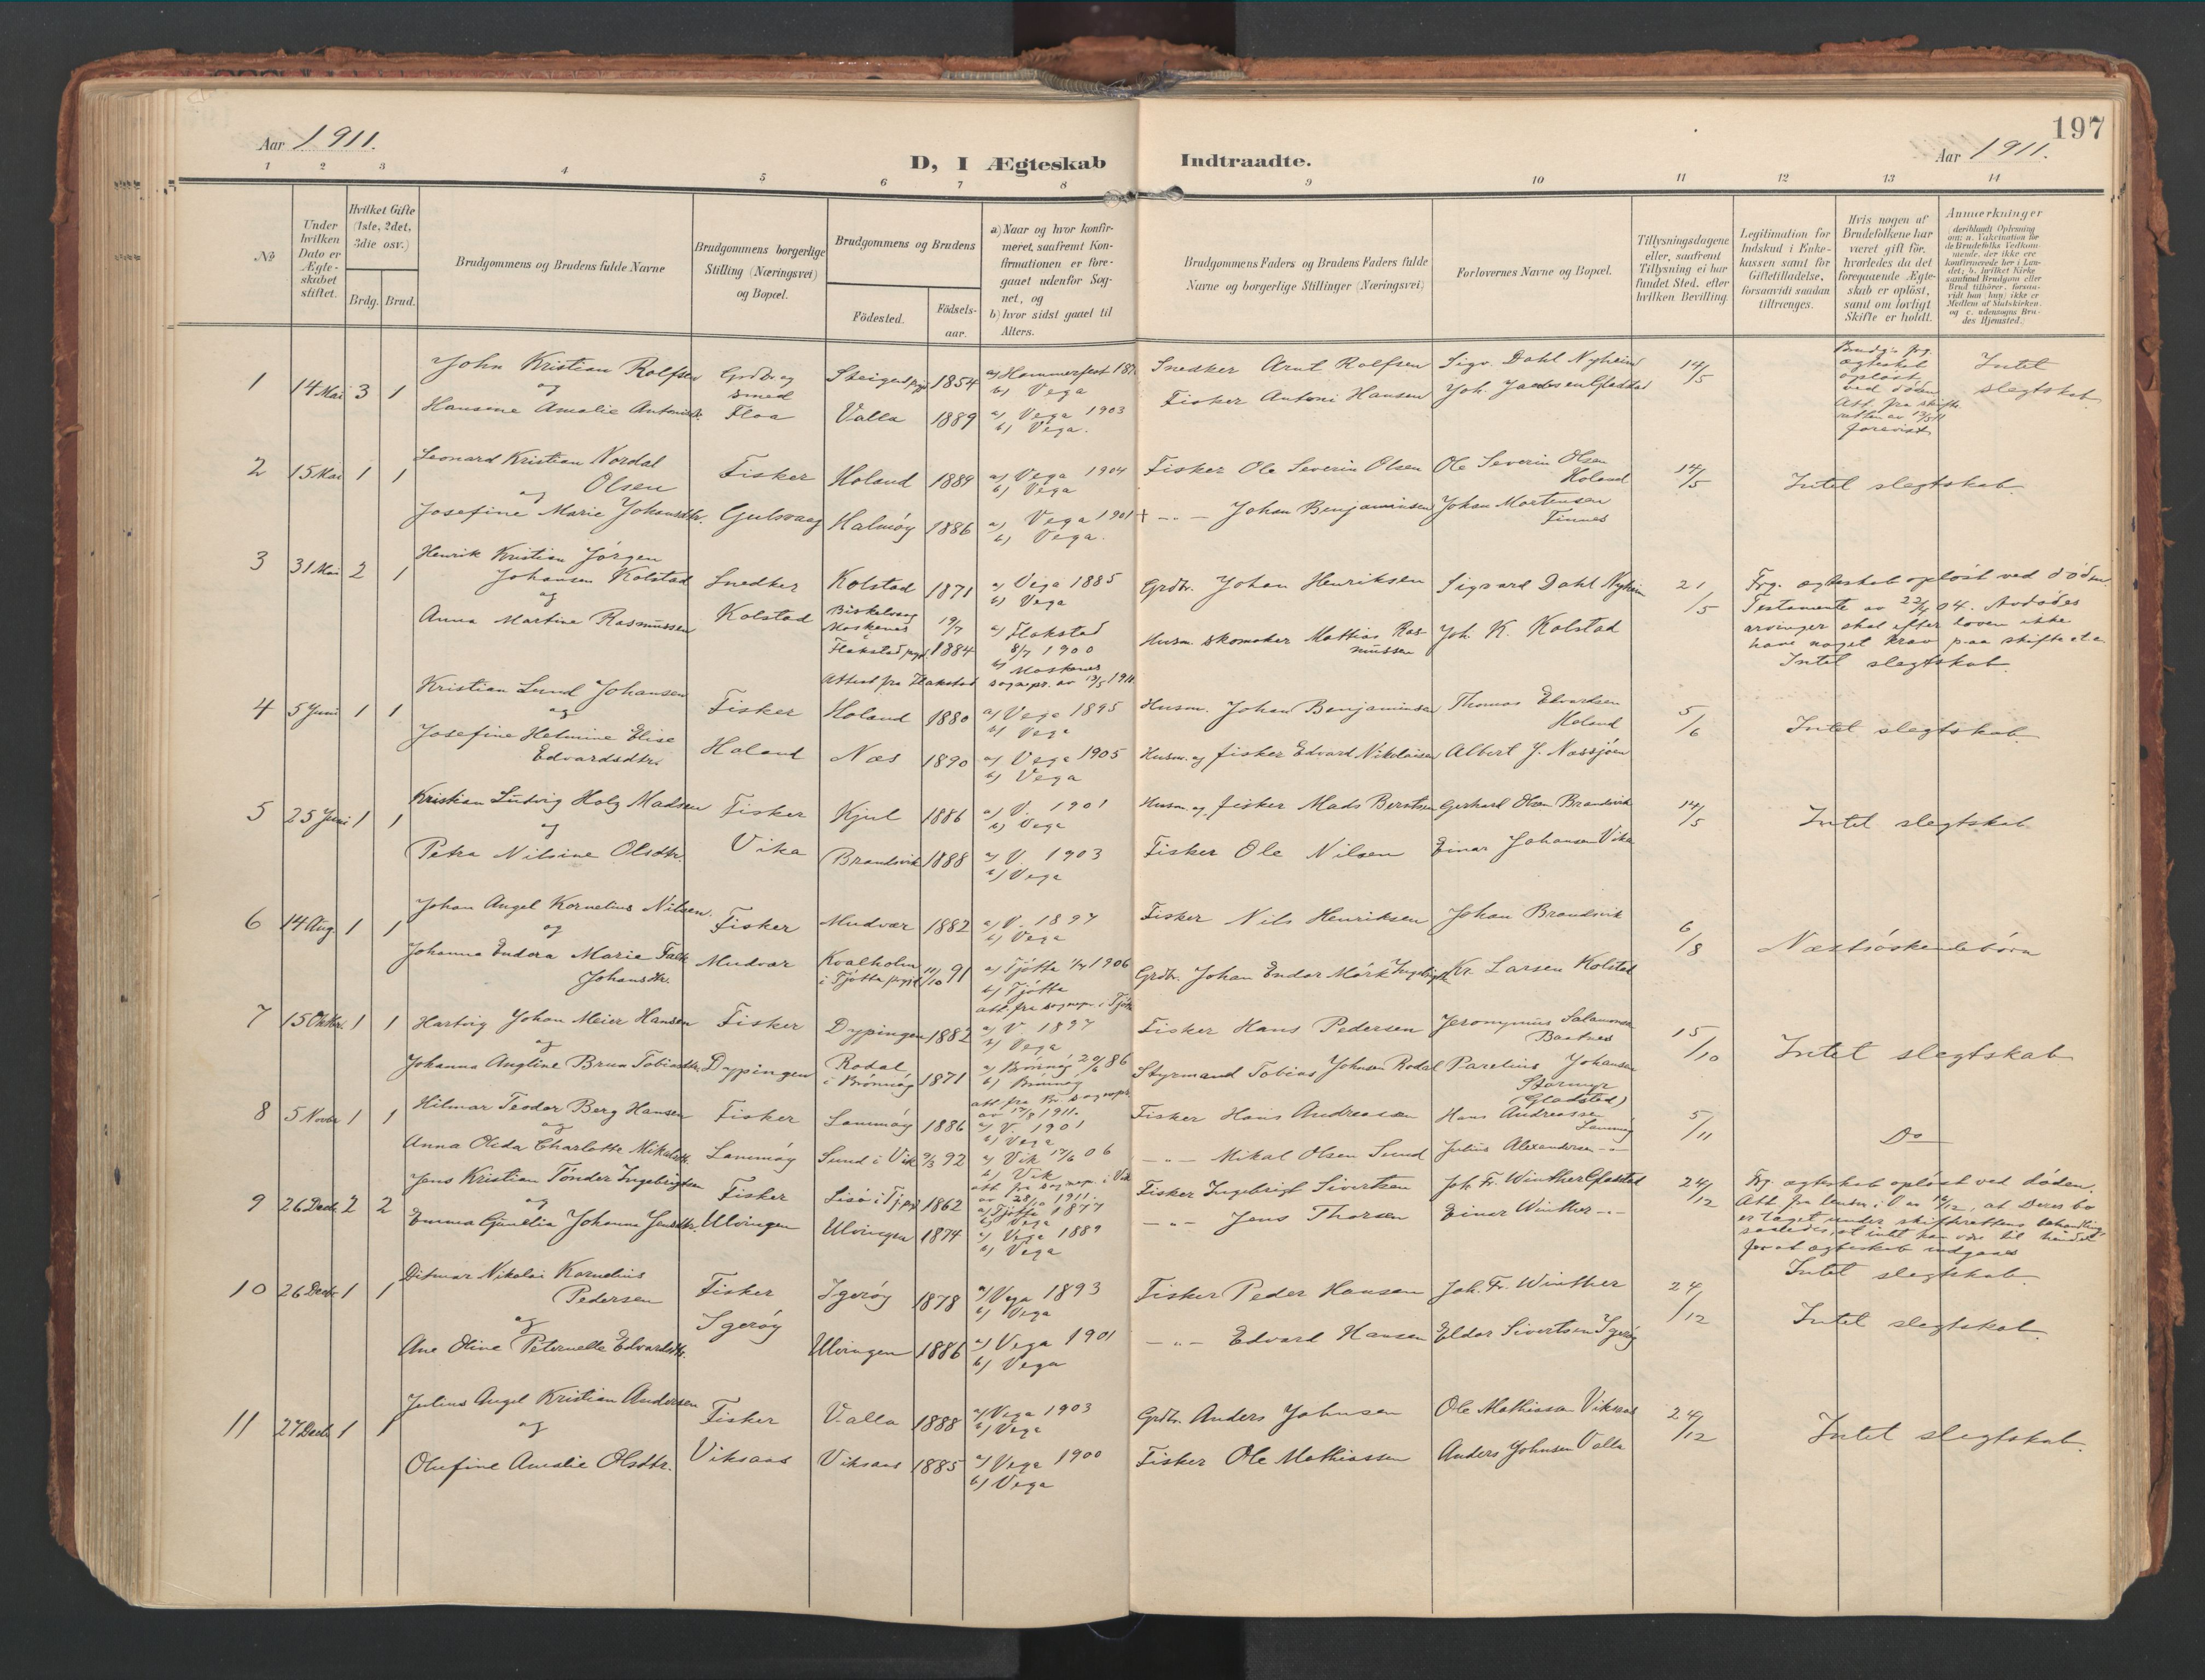 197
Aar 1911.
D, I Ægteskab Indtraadte.
Aar 1911.
1 2 3 4 5 6 7 8 9 10 11 12 13 14
№
Under hvilken Dato er Ægteskabet stiftet.
Hvilket Gifte (1ste, 2det, 3die osv.)
Brdg. Brud.
Brudgommens og Brudens fulde Navne
Brudgommens borgerlige Stilling (Næringsvei) og Bopæl.
Brudgommens og Brudens
Födested. Födselsaar.
a) Naar og hvor konfirmeret, saafremt Konfirmationen er foregaaet udenfor Sognet, og
b) hvor sidst gaaet til Alters.
Brudgommens Faders og Brudens Faders fulde Navne og borgerlige Stillinger (Næringsvei)
Forlovernes Navne og Bopæl.
Tillysningsdagene eller, saafremt Tillysning ei har fundet Sted, efter hvilken Bevilling.
Legitimation for Indskud i Enkekassen samt for Giftetilladelse, forsaavidt saadan tiltrænges.
Hvis nogen af Brudefolkene har været gift för, hvorledes da det foregaaende Ægteskab er oplöst, samt om lovligt Skifte er holdt.
Anmerkninger
(deriblandt Oplysning om: a. Vakcination for de Brudefolks Vedkommende, der ikke ere konfirmerede her i Landet; b. hvilket Kirkesamfund Brudgom eller Brud tilhörer, forsaavidt han (hun) ikke er Medlem af Statskirken, og c. udensogns Brudes Hjemsted.)
1 14 Mai 3 1 John Kristian Rolfsen Grdbr og Steigen prgj. 1854 a) Hammerfest b) Vega Snedker Arnt Rolfsen Sigv. Dahl Nyheim 14/5
og smed
Hansene Amalie Antonisdtr. Floa Valla 1889 a) Vega 1903 b) Vega. Fisker Antoni Hansen Joh. Jacobsen Gladstad
Brudg's frg. ægteskab opløst ved døden Att. fra skifteretten av 13/5 11 forevist
Intet slegtskab
2 15 Mai 1 1 Leonard Kristian Nordal Olsen Fisker Holand 1889 a) Vega 1904 b) Vega Fisker Ole Severin Olsen Ole Severin Olsen Holand 14/5 Intet slegtskab.
og
Josefine Marie Johansdtr. Gulsvaag Halmøy 1886 a) Vega 1901 b) Vega. + -"- Johan Benjaminsen Johan Mortensen Finnes
3 31 Mai 2 1 Henrik Kristian Jørgen Johansen Kolstad Snedker Kolstad 1871 a) Vega 1885 b) Vega Grdbr. Johan Henriksen Sigvard Dahl Nyheim 21/5
og
Anna Martine Rasmussen Kolstad Moskenes i Flakstad prgj. 19/7 1884 a) Flakstad 8/7 1900 b) Moskenes Husm. skomaker Mathias Rasmussen Joh. K. Kolstad
Attest fra Flakstad sognepr. av 13/5 1911
Frg. ægteskab opløst ved døden.
Testamente av 22/4 04. Avdødes
arvinger skal efter loven ikke
have noget krav paa skifte etc
Intet slegtskab
4 5 Juni 1 1 Kristian Lund Johansen Fisker Holand 1880 a) Vega 1895 b) Vega Husm. Johan Benjaminsen Thomas Edvardsen Holand 5/6 Intet slegtskab
og
Josefine Helmine Elise Edvardsdtr. Holand Næs 1890 a) Vega 1905 b) Vega Husm. og fisker Edvard Nikolaisen Albert J. Næssjøen
5 25 Juni 1 1 Kristian Ludvig Holz Madsen Fisker Kjul 1886 a) V. 1901 b) Vega Husm. og fisker Mads Berntsen Gerhard Olsen Brandsvik 14/5 Intet slegtskab
og
Petra Nilsine Olsdtr. Vika Brandsvik 1888 a) V. 1903 b) Vega Fisker Ole Nilsen Einar Johansen Vika
6 14 Aug 1 1 Johan Angel Kornelius Nilsen. Fisker Mudvær 1882 a) V. 1897 b) Vega Fisker Nils Henriksen Johan Brandsvik 6/8 Næstsøskendebørn
og
Johanna Endora Marie Falk Johansdtr. Mudvær Kvalholm i Tjøtta prgj. 11/10 91 a) Tjøtta 1/7 1906 b) Tjøtta Grdbr. Johan Endor Mørk Ingebrigtsen Kr. Larsen Kolstad
att. fra sognepr. i Tjøtta
7 15 Oktbr. 1 1 Hartvig Johan Meier Hansen Fisker Dypingen 1882 a) V. 1897 b) Vega Fisker Hans Pedersen Jeronymus Salamonsen Baatnes 15/10 Intet slegtskab
og
Johanna Angline Brun Tobiasdtr. Dypingen Rodal i Brønnøy 1871 a) Brønnøy 20/6 86 b) Brønnøy Styrmand Tobias Johnsen Rodal Parelius Johansen Stormyr (Gladstad)
att. fra Br. sognepr. av 17/9 1911.
8 5 Novbr 1 1 Hilmar Teodor Berg Hansen Fisker Lammøy 1886 a) V. 1901 b) Vega Fisker Hans Andreasen Hans Andreassen Lammøy 5/11 Do
og
Anna Olida Charlotte Mikalsdtr. Lammøy Sund i Vik 9/3 92 a) Vik 17/6 06 b) Vik -"- Mikal Olsen Sund Julius Alexandersen -"-
att. fra sognepr. i Vik av 28/10 1911.
9 26 Decbr 2 2 Jens Kristian Tønder Ingebrigtsen Fisker Lisø i Tj. pgj 1862 a) Tjøtta 1877 b) Vega Fisker Ingebrigt Sivertsen Joh. Fr. Winther Gladstad 24/12
og
Emma Gjurelia Johanna Jensdtr. Ulvingen Ulvingen 1874 a) Vega 1889 b) Vega -"- Jens Thorsen Einer Winther -"-
Frg. ægteskab opløst ved døden.
Att. fra lensm. i Vega 12/12, at Deres bo
er taget under skifterettens behandling,
saaledes, at intet kan være til hinder
for at ægteskab indgaaes
Intet slegtskab.
10 26 Decbr 1 1 Ditmar Nikolai Kornelius Pedersen Fisker Igerøy 1878 a) Vega 1893 b) Vega Fisker Peder Hansen Joh. Fr. Winther 24/12 Intet slegtskab.
og
Ane Oline Peternelle Edvardsdtr. Igerøy Ulvingen 1886 a) Vega 1901 b) Vega -"- Edvard Hansen Eldor Sivertsen Igerøy
11 27 Decbr 1 1 Julius Angel Kristian Andersen Fisker Valla 1888 a) Vega 1903 b) Vega Grdbr. Anders Johnsen Ole Mathiassen Viksaas 24/12 Intet slegtskab.
og
Olufine Amalie Olsdtr. Viksaas Viksaas 1885 a) Vega 1900 b) Vega Fisker Ole Mathiassen Anders Johnsen Valla